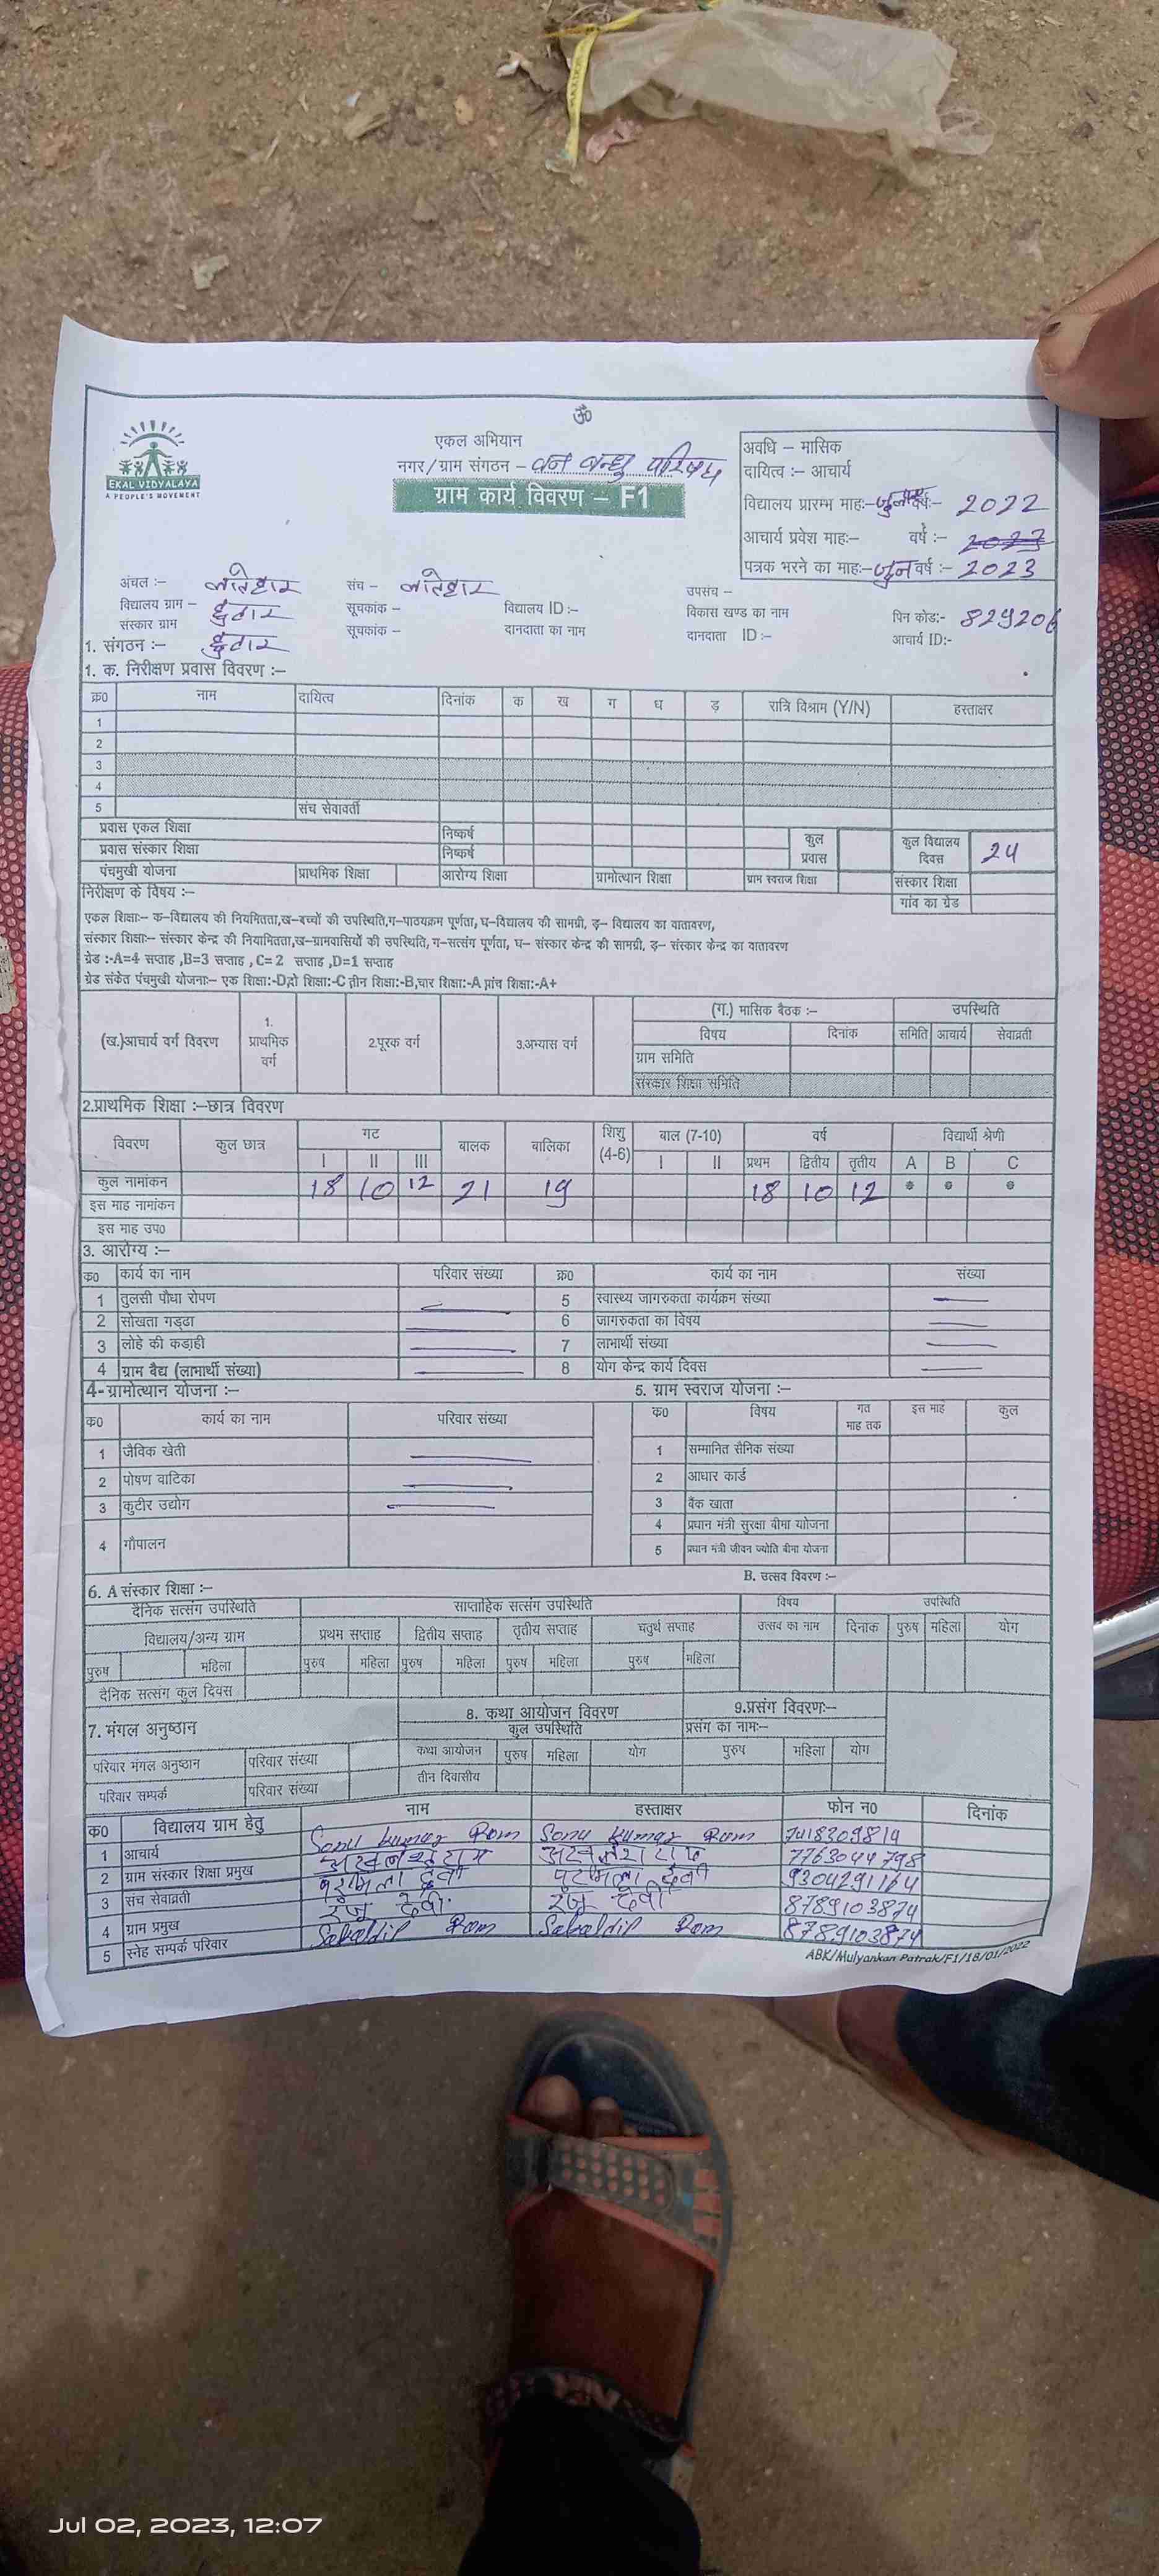 ॐ
EKAL VIDYALAYA
A PEOPLE'S MOVEMENT
एकल अभियान
नगर/ग्राम संगठन – वन बन्धु परिषद
ग्राम कार्य विवरण – F1
अवधि – मासिक
दायित्व :– आचार्य
विद्यालय प्रारम्भ माह:– वर्ष:– 2022
आचार्य प्रवेश माह:– वर्ष :–
पत्रक भरने का माह:– जुन वर्ष :– 2023
अंचल :– लातेहार संच – लातेहार उपसंच –
विद्यालय ग्राम – सूचकांक – विद्यालय ID :– विकास खण्ड का नाम पिन कोड:– 829206
संस्कार ग्राम सूचकांक – दानदाता का नाम दानदाता ID :– आचार्य ID:–
1. संगठन :–
1. क. निरीक्षण प्रवास विवरण :–
क्र0 नाम दायित्व दिनांक क ख ग घ ड़ रात्रि विश्राम (Y/N) हस्ताक्षर
1
2
3
4
5 संच सेवावर्ती
प्रवास एकल शिक्षा निष्कर्ष कुल प्रवास कुल विद्यालय दिवस 24
प्रवास संस्कार शिक्षा निष्कर्ष
पंचमुखी योजना प्राथमिक शिक्षा आरोग्य शिक्षा ग्रामोत्थान शिक्षा ग्राम स्वराज शिक्षा संस्कार शिक्षा
निरीक्षण के विषय :– गांव का ग्रेड
एकल शिक्षा:– क–विद्यालय की नियमितता,ख–बच्चों की उपस्थिति,ग–पाठयक्रम पूर्णता, घ–विद्यालय की सामग्री, ड़– विद्यालय का वातावरण,
संस्कार शिक्षा:– संस्कार केन्द्र की नियामितता,ख–ग्रामवासियों की उपस्थिति, ग–सत्संग पूर्णता, घ– संस्कार केन्द्र की सामग्री, ड़– संस्कार केन्द्र का वातावरण
ग्रेड :–A=4 सप्ताह ,B=3 सप्ताह , C= 2 सप्ताह ,D=1 सप्ताह
ग्रेड संकेत पंचमुखी योजना:– एक शिक्षा:–D,दो शिक्षा:–C तीन शिक्षा:–B,चार शिक्षा:–A पांच शिक्षा:–A+
(ख.)आचार्य वर्ग विवरण 1. प्राथमिक वर्ग 2.पूरक वर्ग 3.अभ्यास वर्ग (ग.) मासिक बैठक :– उपस्थिति
विषय दिनांक समिति आचार्य सेवाव्रती
ग्राम समिति
संस्कार शिक्षा समिति
2.प्राथमिक शिक्षा :–छात्र विवरण
विवरण कुल छात्र गट बालक बालिका शिशु (4-6) बाल (7-10) वर्ष विद्यार्थी श्रेणी
I II III I II प्रथम द्वितीय तृतीय A B C
कुल नामांकन 18 10 12 21 19 18 10 12 * * *
इस माह नामांकन
इस माह उप0
3. आरोग्य :–
क0 कार्य का नाम परिवार संख्या क्र0 कार्य का नाम संख्या
1 तुलसी पौधा रोपण 5 स्वास्थ्य जागरुकता कार्यक्रम संख्या
2 सोखता गड्ढा 6 जागरुकता का विषय
3 लोहे की कड़ाही 7 लाभार्थी संख्या
4 ग्राम बैद्य (लाभार्थी संख्या) 8 योग केन्द्र कार्य दिवस
4-ग्रामोत्थान योजना :– 5. ग्राम स्वराज योजना :–
क0 कार्य का नाम परिवार संख्या क0 विषय गत माह तक इस माह कुल
1 जैविक खेती 1 सम्मानित सैनिक संख्या
2 पोषण वाटिका 2 आधार कार्ड
3 कुटीर उद्योग 3 बैंक खाता
4 गौपालन 4 प्रधान मंत्री सुरक्षा बीमा योजना
5 प्रधान मंत्री जीवन ज्योति बीमा योजना
6. A संस्कार शिक्षा :– B. उत्सव विवरण :–
दैनिक सत्संग उपस्थिति साप्ताहिक सत्संग उपस्थिति विषय उपस्थिति
विद्यालय/अन्य ग्राम प्रथम सप्ताह द्वितीय सप्ताह तृतीय सप्ताह चतुर्थ सप्ताह उत्सव का नाम दिनांक पुरुष महिला योग
पुरुष महिला पुरुष महिला पुरुष महिला पुरुष महिला पुरुष महिला
दैनिक सत्संग कुल दिवस
7. मंगल अनुष्ठान 8. कथा आयोजन विवरण 9.प्रसंग विवरण:–
कुल उपस्थिति प्रसंग का नाम:–
परिवार मंगल अनुष्ठान परिवार संख्या कथा आयोजन पुरुष महिला योग पुरुष महिला योग
परिवार सम्पर्क परिवार संख्या तीन दिवासीय
क0 विद्यालय ग्राम हेतु नाम हस्ताक्षर फोन न0 दिनांक
1 आचार्य Sonu kumar Ram Sonu kumar Ram 7418309819
2 ग्राम संस्कार शिक्षा प्रमुख 7763044798
3 संच सेवाव्रती देवी देवी 9304291164
4 ग्राम प्रमुख रंजू देवी रंजू देवी 8789103874
5 स्नेह सम्पर्क परिवार Ram Ram 8789103874
ABK/Mulyankan Patrak/F1/18/01/2022
Jul 02, 2023, 12:07